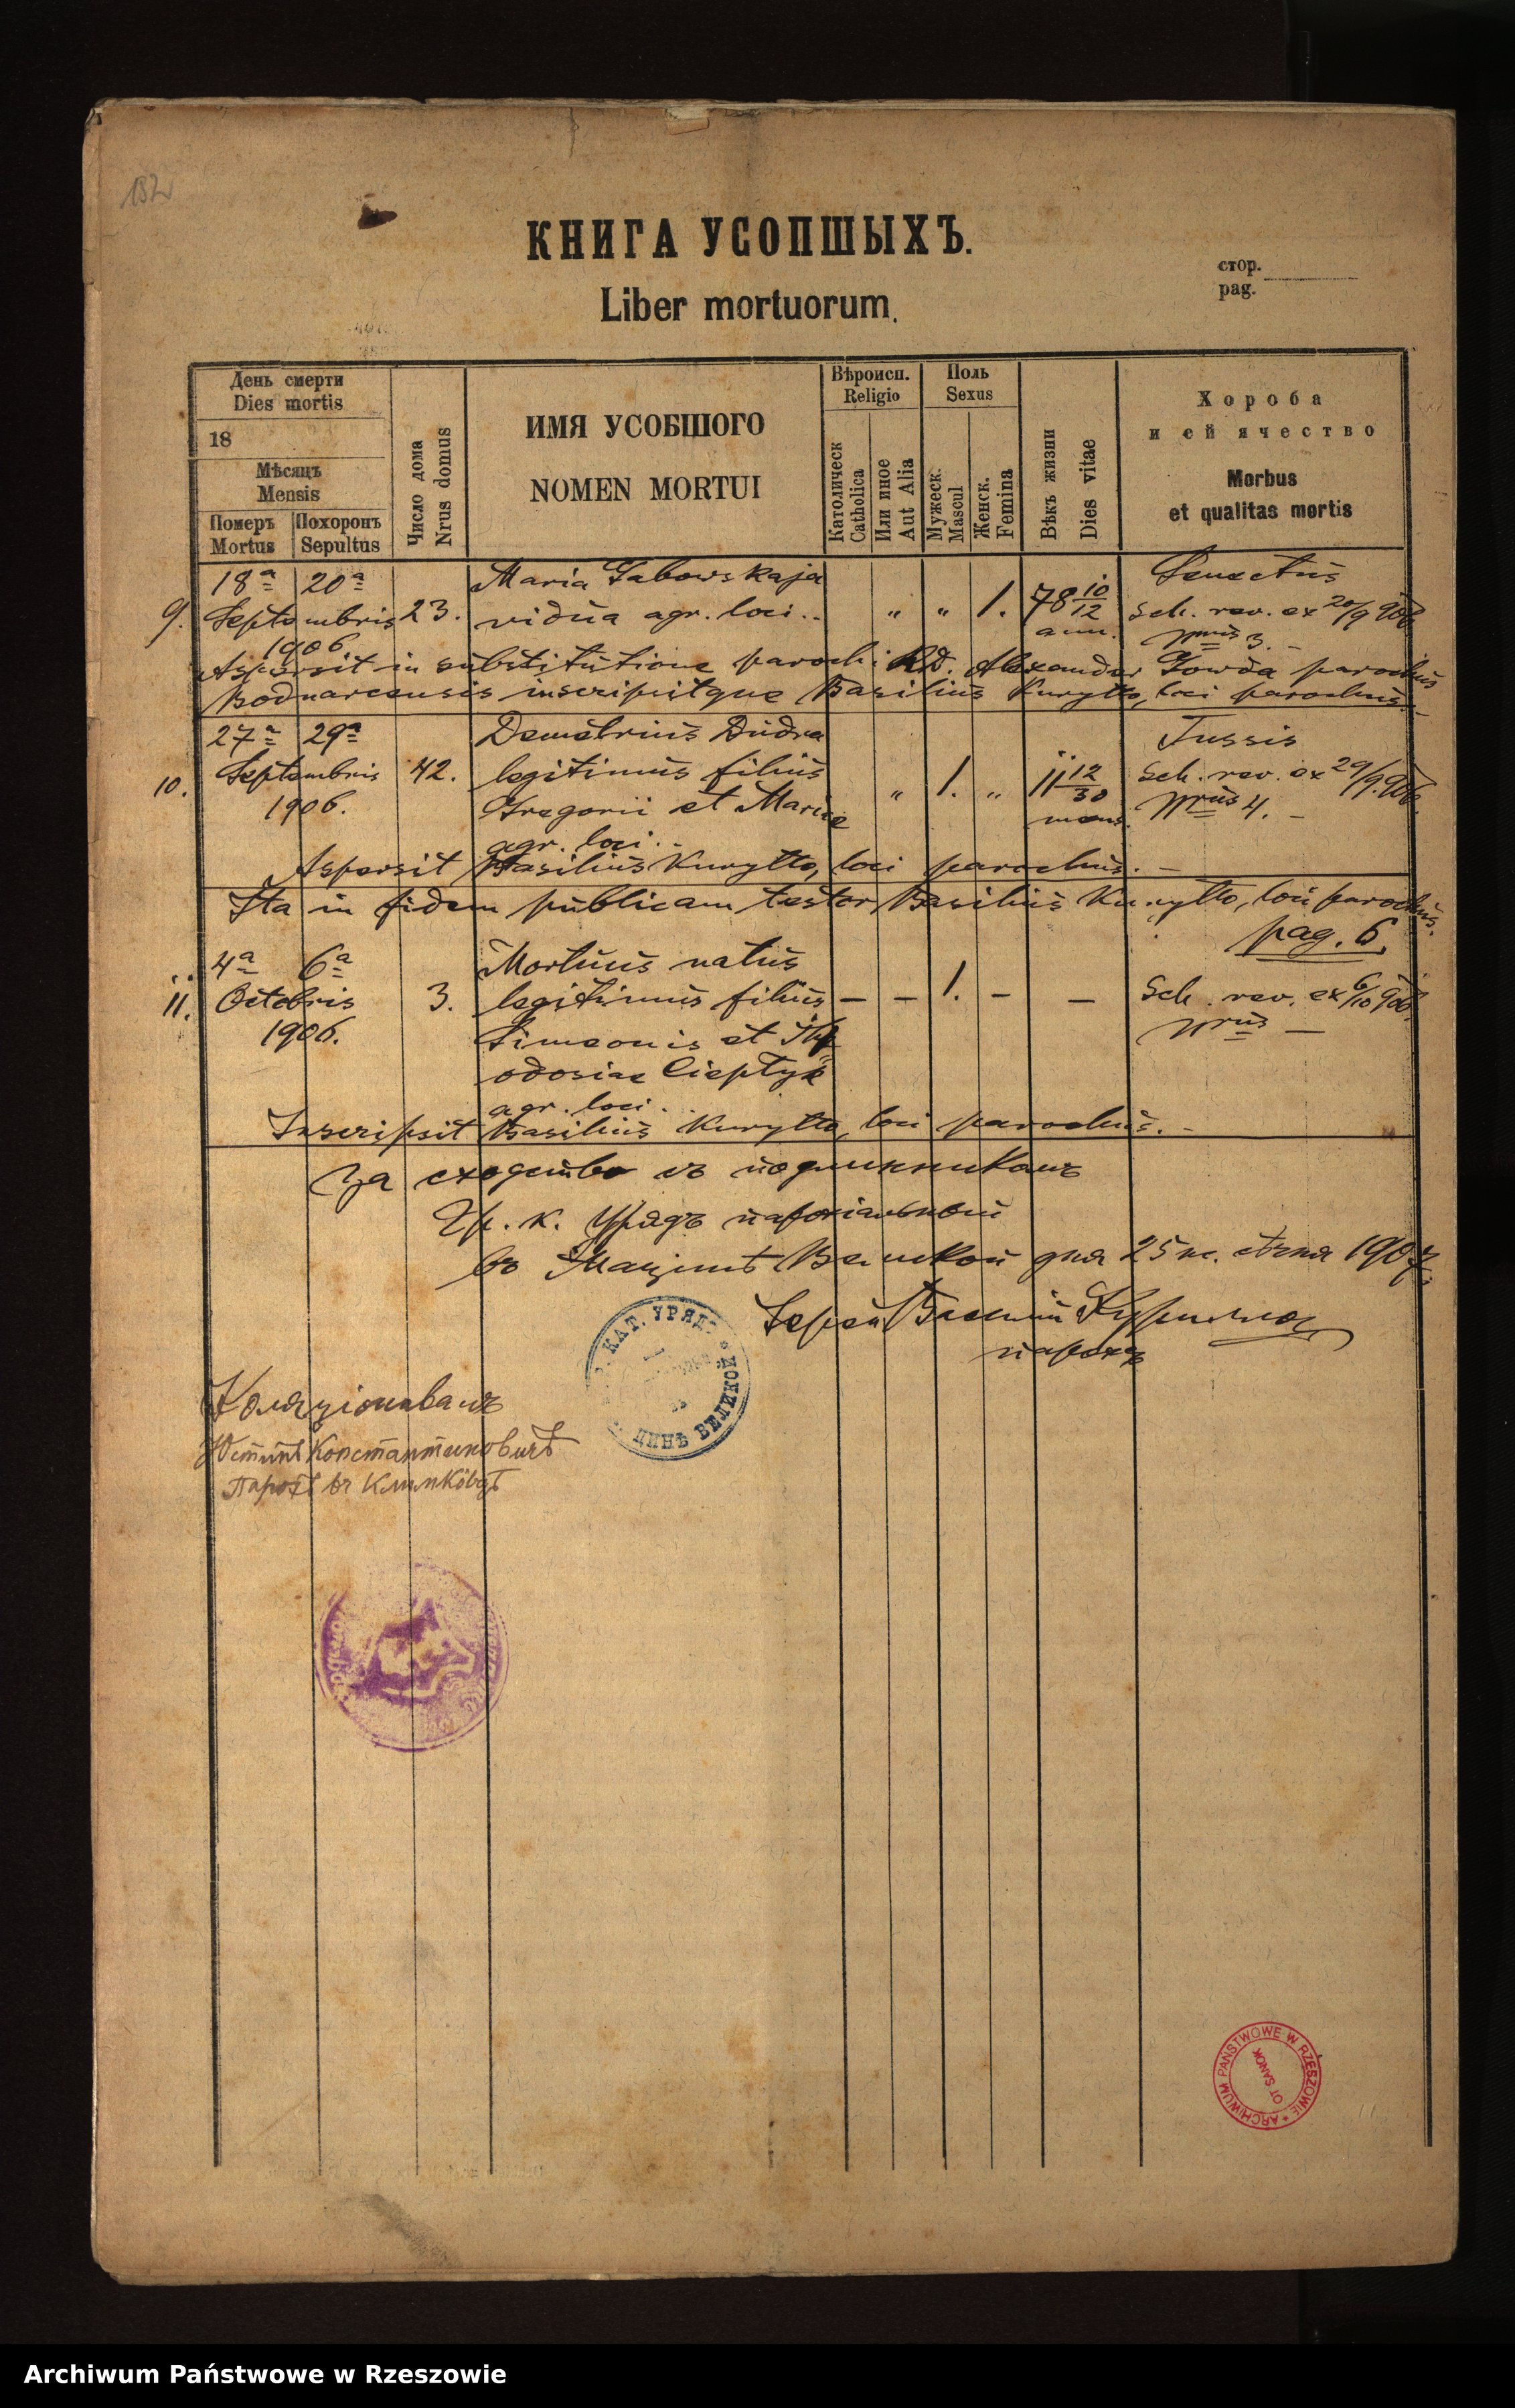 132
КНИГА УСОПШЫХЪ.
стор.
pag.
Liber mortuorum.
День смерти
Dies mortis
18
Мѣсяцъ
Mensis
Померъ Похоронъ
Mortus Sepultus
Число дома
Nrus domus
ИМЯ УСОБШОГО
NOMEN MORTUI
Вѣроисп.
Religio
Католическ
Catholica
Или иное
Aut Alia
Поль
Sexus
Мужеск.
Mascul
Женск.
Femina
Вѣкъ жизни
Dies vitae
Хороба
и ей ячество
Morbus
et qualitas mortis
18ª 20ª Maria Gabowskaja Senectus
9. Septembris 23. vidua agr. loci.. „ „ 1. 78 10/12 Sch. rev. ex 20/9 906
1906. ann. Nrus 3. –
Aspersit in substitutione parochi Rd. Alexander Gowda parochus
Bodnarcensis inscripsitque Basilius Kuryłło, loci parochus. –
27ª 29ª Demetrius Dudra Tussis
10. Septembris 42. legitimus filius „ 1. „ 11 12/30 Sch. rev. ex 29/9 906.
1906. Gregorii et Mariae mens. Nrus 4. –
agr. loci. –
Aspersit Basilius Kuryłło, loci parochus. –
Ita in fidem publicam testor Basilius Kuryłło, loci parochus.
pag. 6.
4ª 6ª Mortuus natus
11. Octobris 3. legitimus filius – – 1. – – Sch. rev. ex 6/10 906.
1906. Simeonis et Th Nrus –
odosiae Cieptyk
agr. loci.
Inscripsit Basilius Kuryłło, loci parochus. –
За сходство съ подлинникомъ
Гр. к. Урядъ парохіальный
въ Мацинѣ Великой дня 25 н. сѣчня 1907
Іерей Василій Курилло
парохъ
КАТ. УРЯД
ЦИНѢ ВЕЛИКОЙ
Коляціонивалъ
Юстинъ Константиновичъ
Парохъ въ Климковцѣ
ARCHIWUM PAŃSTWOWE W RZESZOWIE *
OT SANOK
Archiwum Państwowe w Rzeszowie